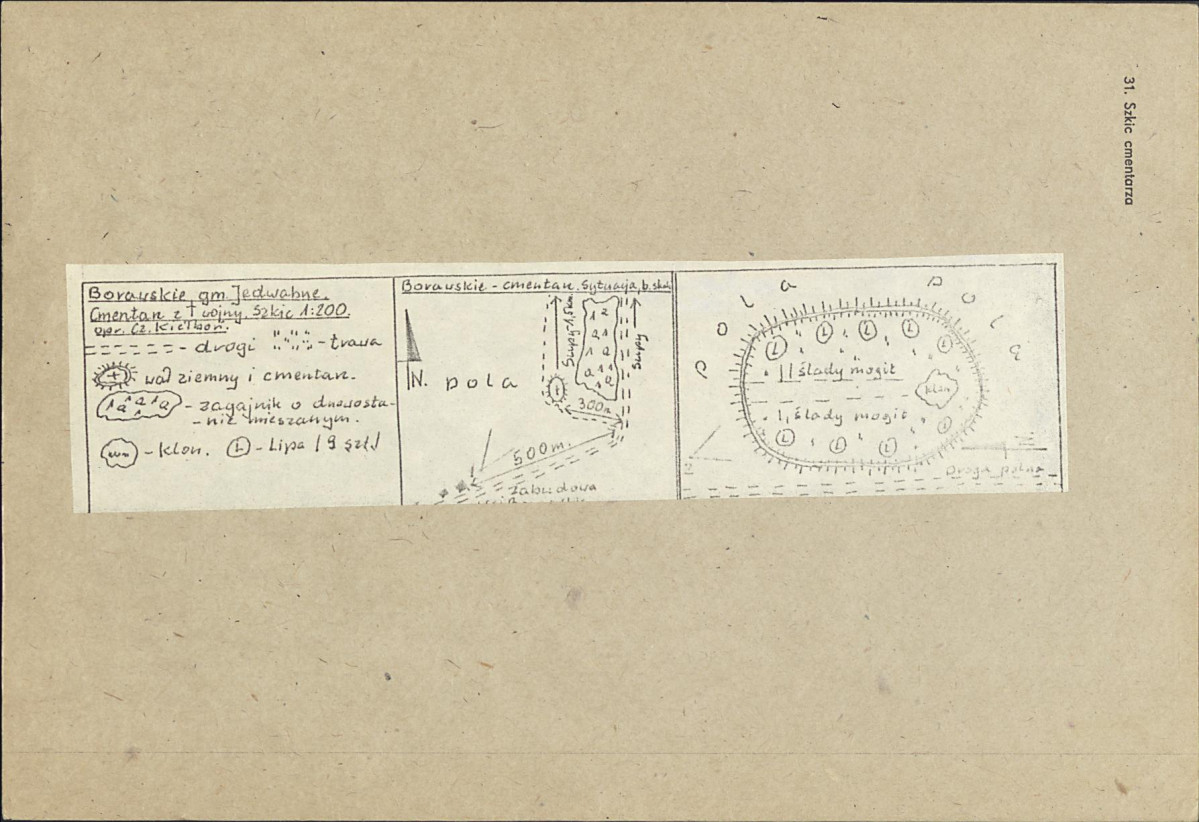 31. Szkic cmentarza
Borawskie, gm. Jedwabne.
Cmentarz z I wojny. Szkic 1:200.
opr. Cz. Kiełboń.
- drogi - trawa
wał ziemny i cmentarz.
- zagajnik o drzewosta-
- nie mieszanym.
klon - klon. L - Lipa / 9 szt./
Borawskie - cmentarz. Sytuacja, b. skali
N. pola
300m
500m.
zabudowa
pola
pola
L L L L L
II ślady mogił
klon
I, ślady mogił
L L L L
Droga polna